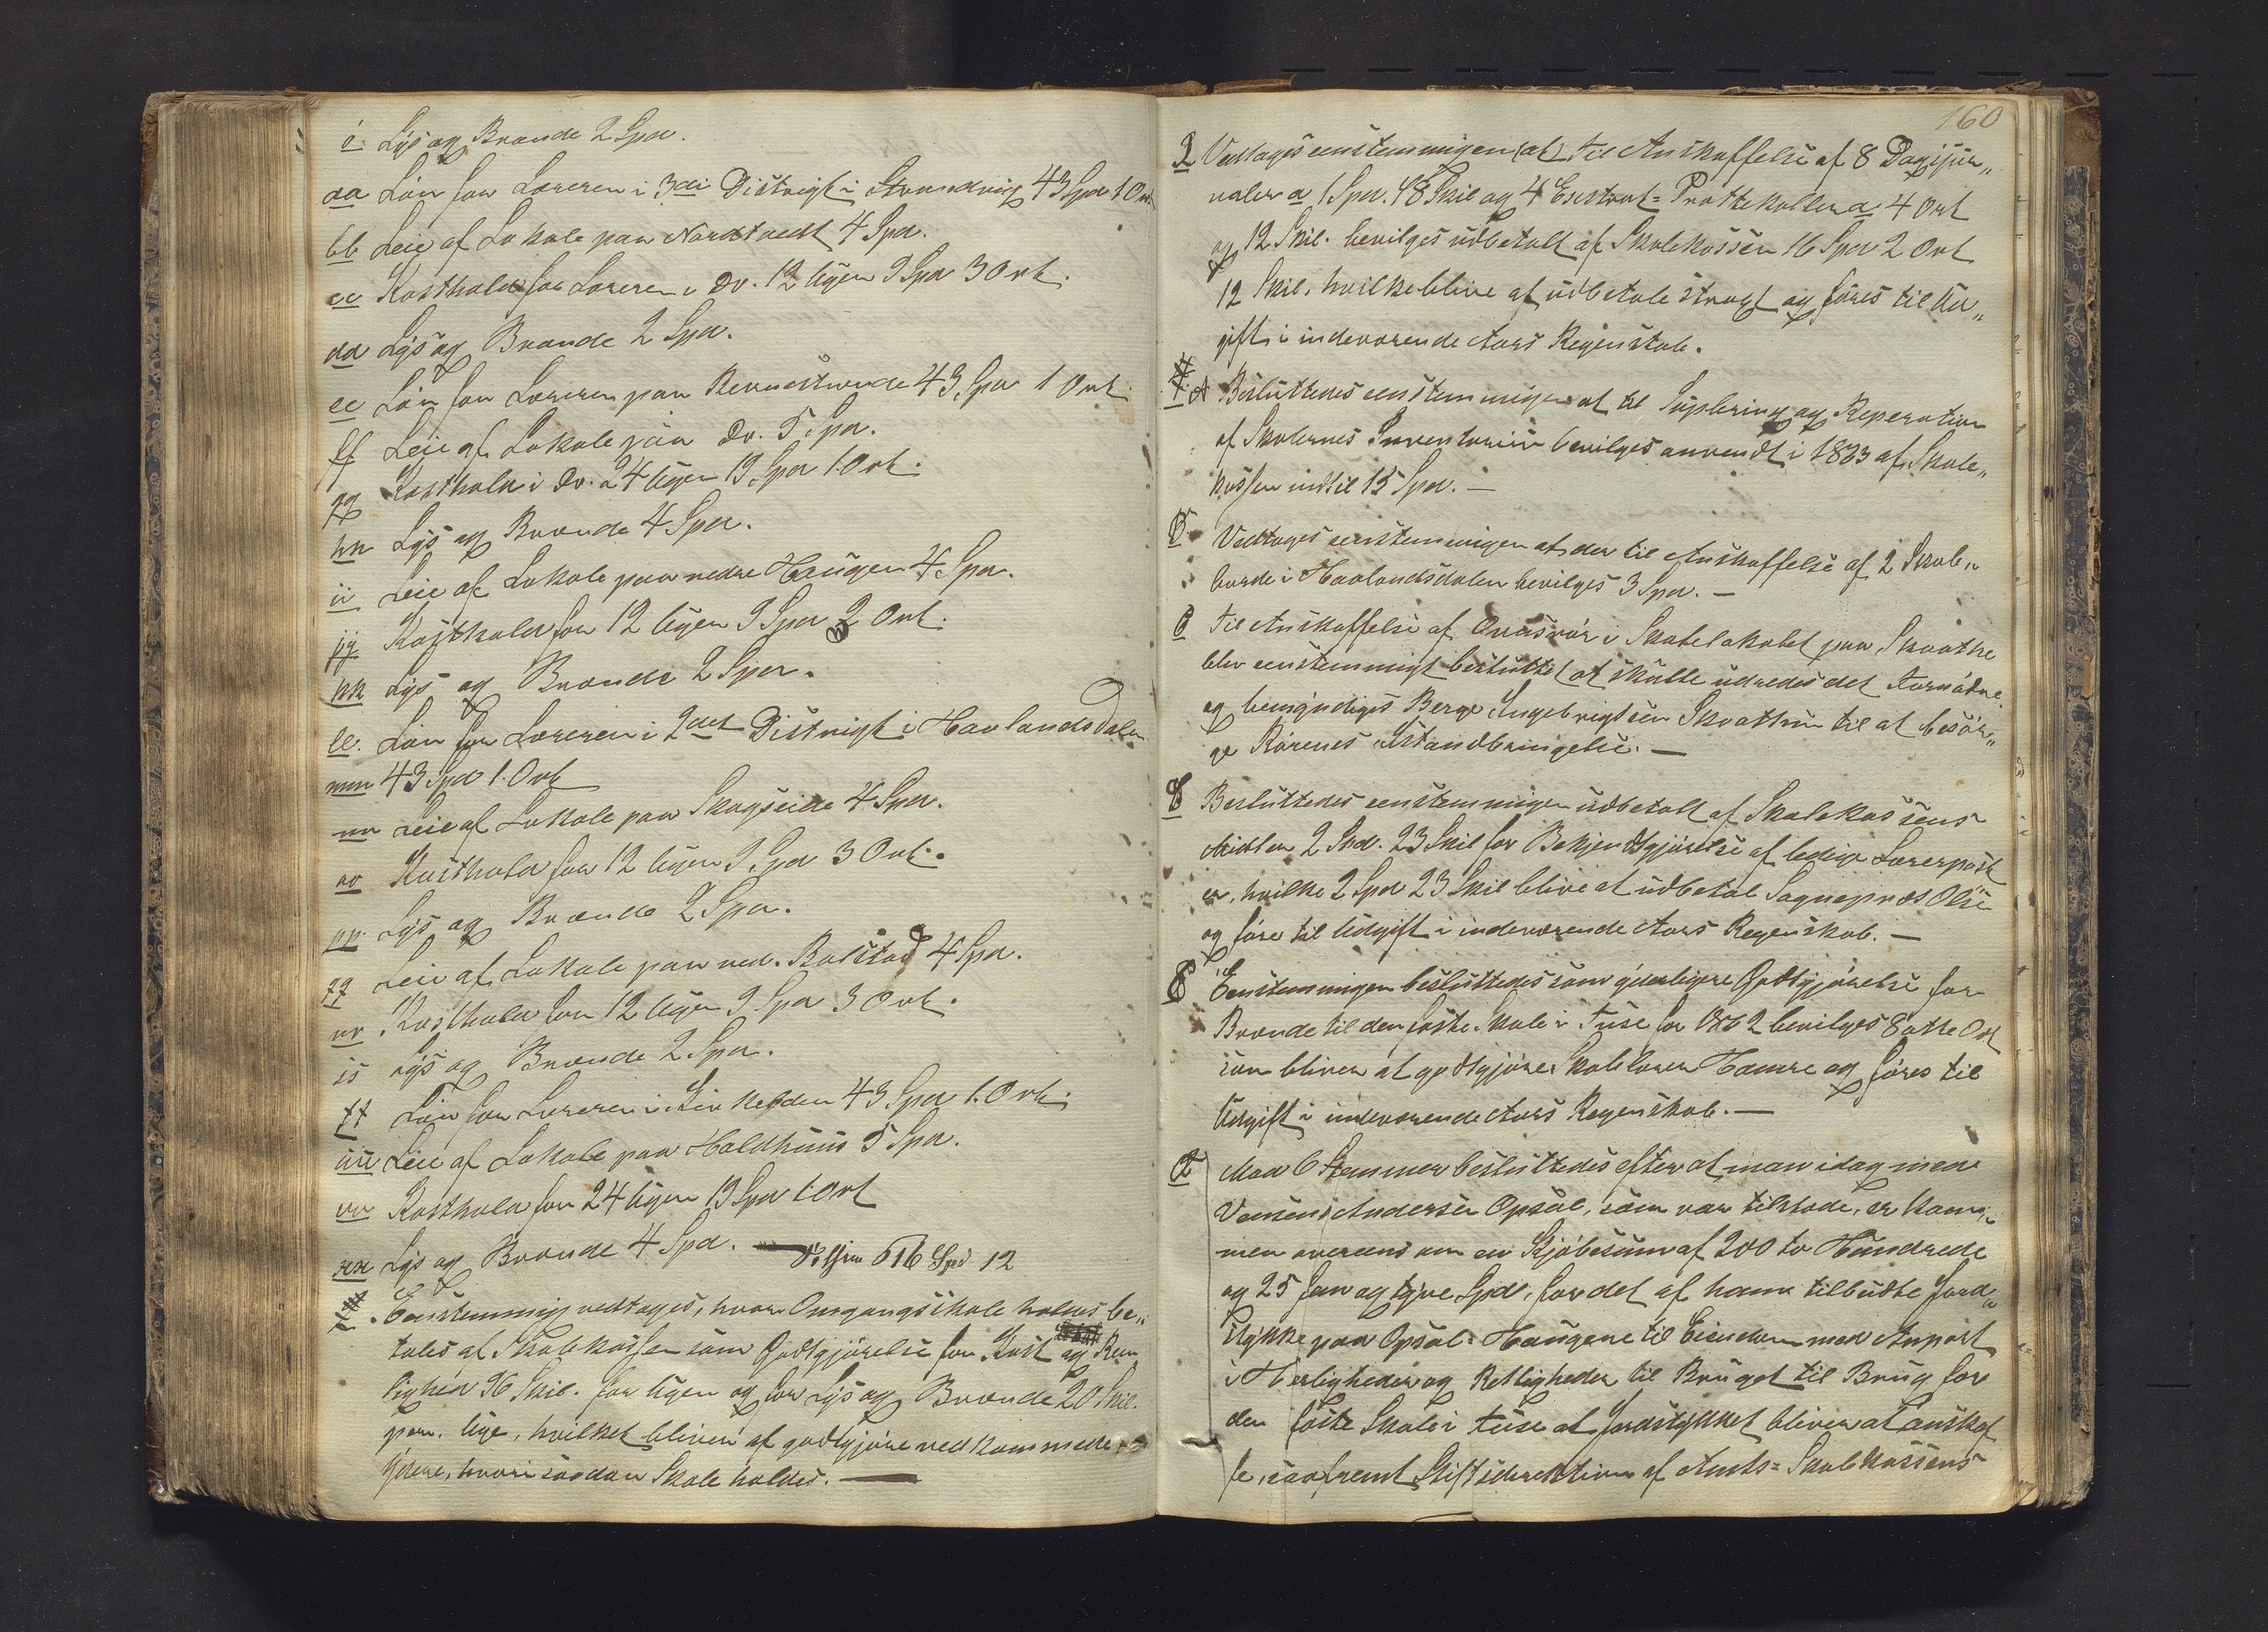 ö Lys og Brænde 2 Spd.
aa Løn for Læreren i 3die Distrigt i Strandvig 43 Spd 1 Ort
bb Leie af Lokale paa Nordtvedt 4 Spd.
cc Kosthold for Læreren i Do. 12 Uger 9 Spd 3 Ort.
dd Lys og Brænde 2 Spd.
ee Løn for Læreren paa 43 Spd 1 Ort.
ff Leie af Lokale paa Do. 5 Spd.
gg Kosthold i Do. 24 Uger 19 Spd 1 Ort.
hh Lys og Brænde 4 Spd.
ii Leie af Lokale paa nedre Haugen 4 Spd.
jj Kosthold for 12 Uger 9 Spd 2 Ort.
kk Lys og Brænde 2 Spd.
ll. Løn for Læreren i 2det Distrigt i Havlandsdalen
mm 43 Spd 1. Ort
nn Leie af Lokale paa Skogseide 4 Spd.
oo Kosthold for 12 Uger 9 Spd 3 Ort.
pp. Lys og Brænde 2 Spd.
qq Leie af Lokale paa ned. Bolstad 4 Spd.
rr Kosthold for 12 Uger 9 Spd 3 Ort.
ss Lys og Brænde 2 Spd.
tt Løn for Læreren i 43 Spd 1. Ort.
uu Leie af Lokale paa Holdhuus 5 Spd.
vv Kosthold for 24 Uger 19 Spd 1 Ort
xx Lys og Brænde 4 Spd. — 616 Spd 12
Eenstemmig vedtoges, hvor Omgangsskole holdes be„
tales af Skolekassen som Godtgjørelse for Kost og Reen
lighed 96 Skil. for Ugen og for Lys og Brænde 20 Skil.
par. Uge, hvilket bliver at godtgjøre vedkommede
Ydere, hvori saadan Skole holdes. —
160
2 Vedtoges eenstemmigen (at) til Anskaffelse af 8 Dagsjur„
naler a 1 Spd. 48 Skil og 4 Exstrat=Prottekoller a 4 Ort
og 12 Skil. bevilges udbetalt af Skolekassen 16 Spd 2 Ort
12 Skil, hvilke blive at udbetale stragt og føres til Ud„
gift i indeværende Aars Regenskab.
A Besluttedes eenstemmigen at til Suplering og Reperation
af Skolernes Inventarium bevilges anvendt i 1863 af Skole„
kassen indtil 15 Spd. —
B. Vedtoges eenstemmigen at der til Anskaffelse af 2 Skole„
borde i Havlandsdalen bevilges 3 Spd. —
C Til Anskaffelse af Ovnsrør i Skolelokalet paa Skoathe
blev eenstemmigt besluttet at skulle udredes det Fornødne.
og bemyndiges Berge Ingebrigtsen Skoathun til at besør„
ge Rørenes Istandbringelse. —
Besluttedes eenstemmigen udbetalt af Skolekassens
Midler 2 Spd. 23 Skil for Bekjendtgjørelse af ledige Lærerpost
er, hvilke 2 Spd 23 Skil blive at udbetale Sognepræst Olse
og føre til Udgift i indeværende Aars Regenskab. —
E Eenstemmigen besluttedes som yderligere Godtgjørelse for
Brænde til den faste Skole i Fuse for 1862 bevilges 8 otte Ort
som bliver at godtgjøre Skolelærer Hamre og føres til
Udgift i indeværende Aars Regenskab. —
Mod 6 Stemmer besluttedes efter at man idag med
Andersen Opsal, som var tilstæde, er kom„
men overeens om en Kjøbesum af 200 to Hundrede
og 25 fem og tyve Spd, for det af ham tilbudte Jord„
stykke paa Opsal=Haugene til Eiendom med Anpart
i Herligheder og Rettigheder til Bruget til Brug for
den faste Skole i Fuse at Jordstykket bliver at anskaf
fe, saafremt Stiftsdirektionen af Amts=Skolekassens